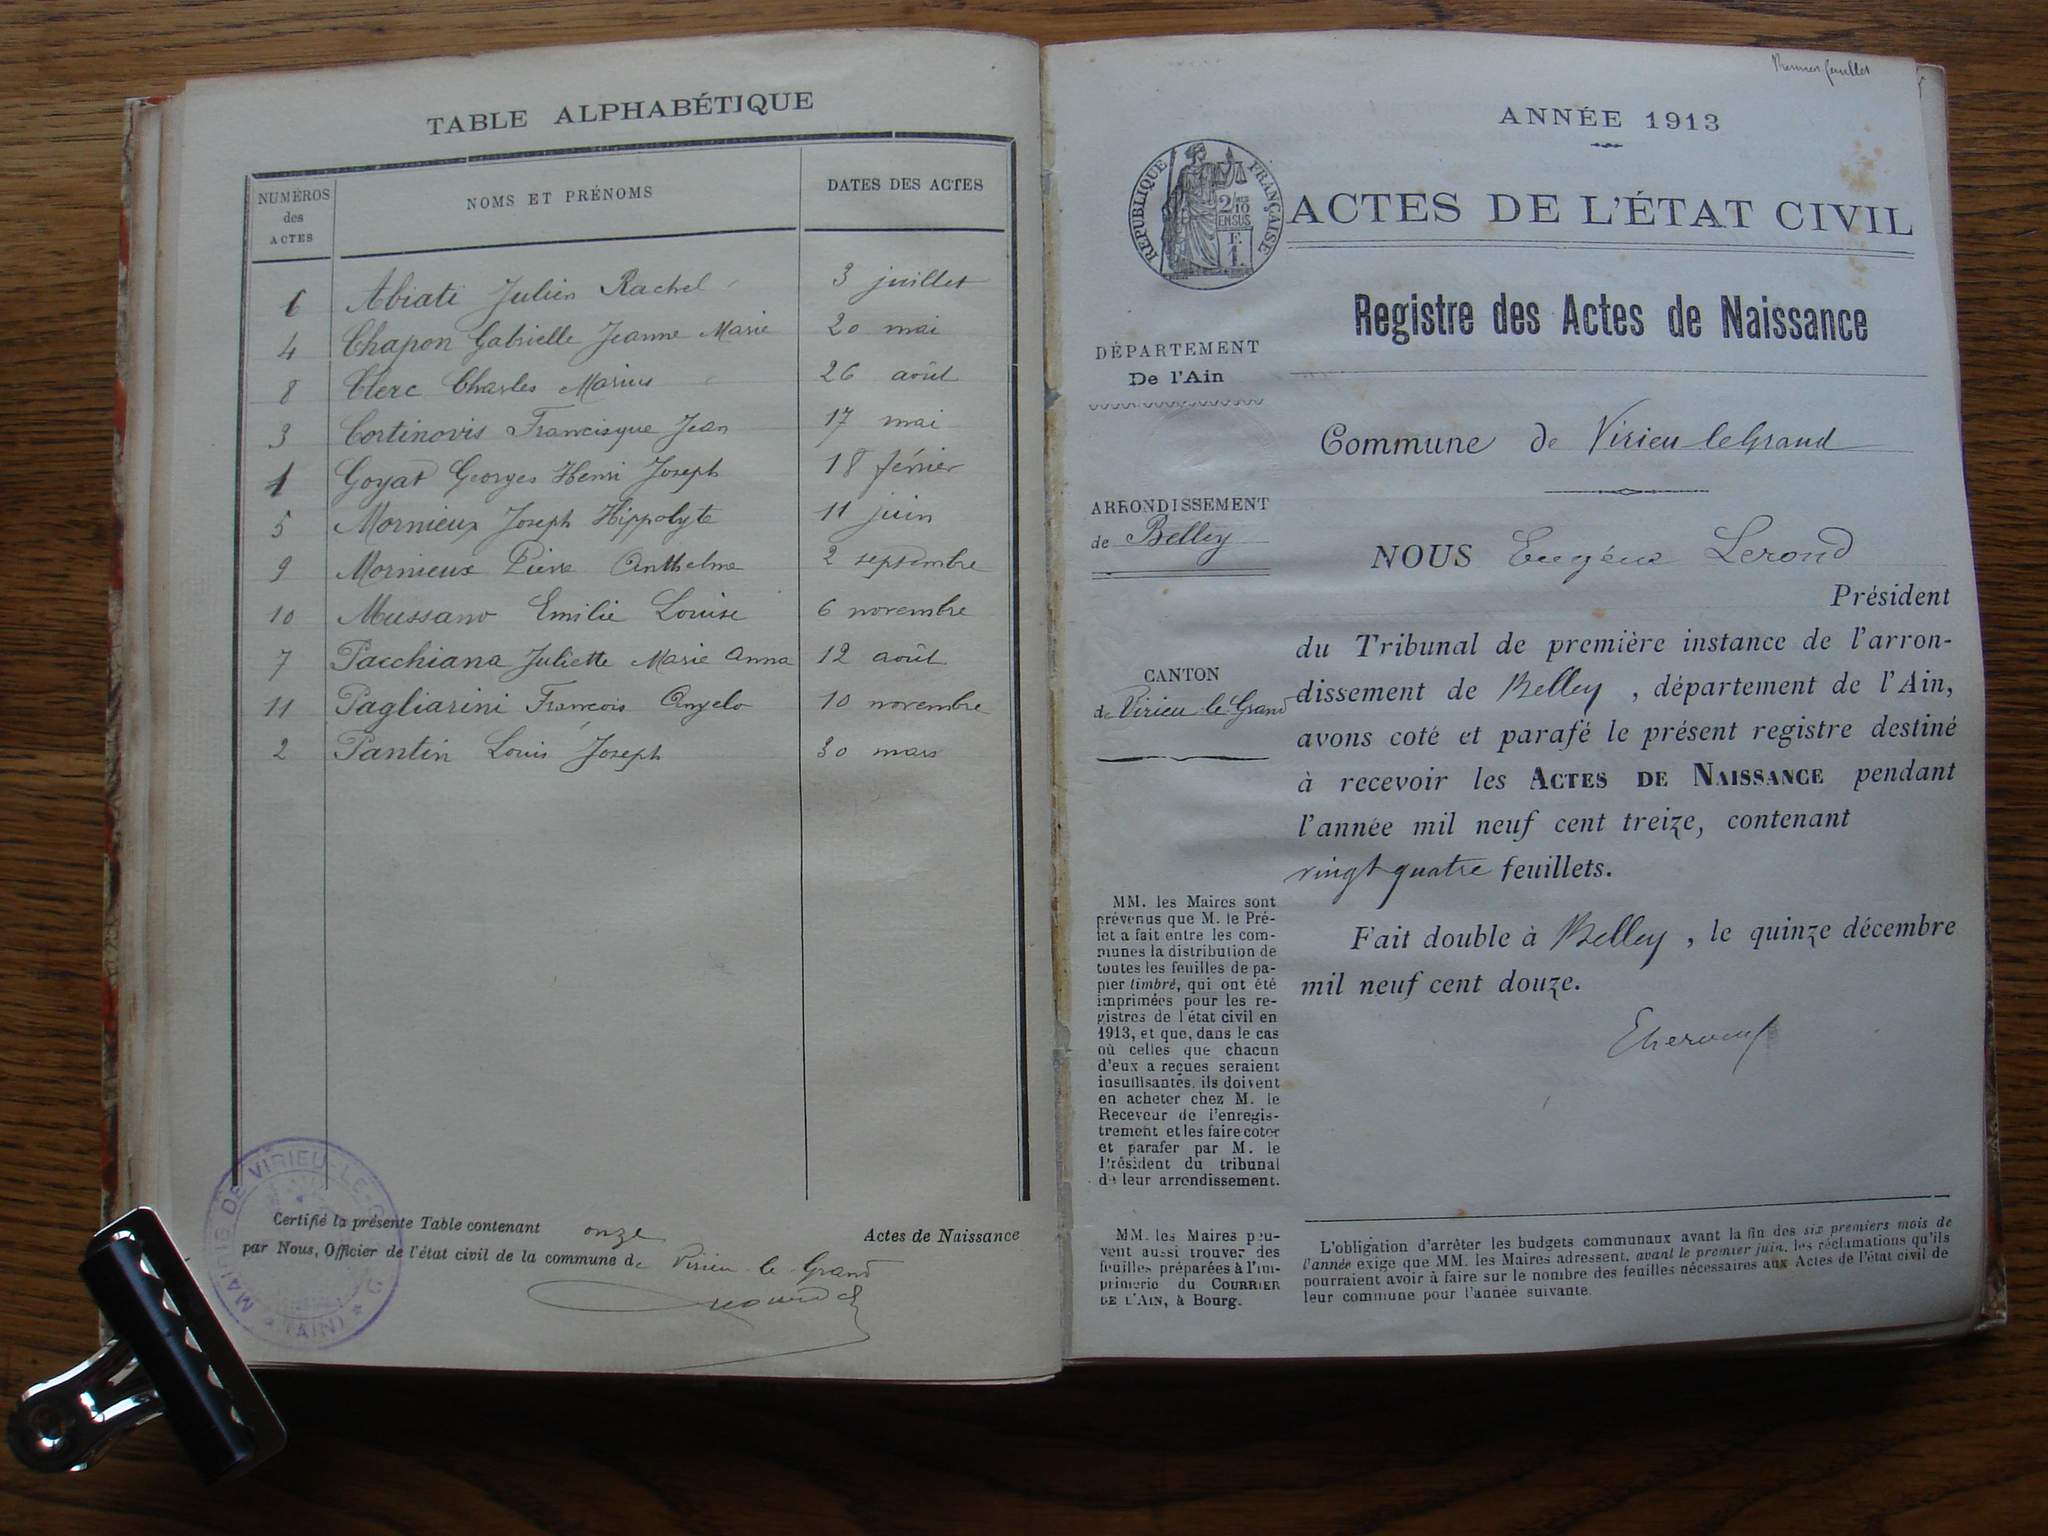 TABLE ALPHABÉTIQUE
NUMÉROS des ACTES
NOMS ET PRÉNOMS
DATES DES ACTES
6 Abiati Julien Rachel 3 juillet
4 Chapon Gabrielle Jeanne Marie 20 mai
8 Clerc Charles Marius 26 août
3 Cortinovis Francisque Jean 17 mai
1 Goyat Georges Henri Joseph 18 février
5 Mornieux Joseph Hippolyte 11 juin
9 Mornieux Pierre Anthelme 2 septembre
10 Mussano Emilie Louise 6 novembre
7 Pacchiana Juliette Marie Anna 12 août
11 Pagliarini François Angelo 10 novembre
2 Pantin Louis Joseph 30 mars
Certifié la présente Table contenant onze Actes de Naissance
par Nous, Officier de l'état civil de la commune de Virieu-le-Grand
MAIRIE DE VIRIEU-LE-GD
(AIN)
Premier feuillet
ANNÉE 1913
RÉPUBLIQUE FRANÇAISE
2/10
EN SUS
F.
1.
ACTES DE L'ÉTAT CIVIL
Registre des Actes de Naissance
DÉPARTEMENT
De l'Ain
Commune de Virieu le Grand
ARRONDISSEMENT
de Belley
NOUS Eugène Lerond
Président
du Tribunal de première instance de l'arron-
dissement de Belley, département de l'Ain,
avons coté et parafé le présent registre destiné
à recevoir les ACTES DE NAISSANCE pendant
l'année mil neuf cent treize, contenant
vingt quatre feuillets.
Fait double à Belley, le quinze décembre
mil neuf cent douze.
CANTON
de Virieu le Grand
MM. les Maires sont
prévenus que M. le Pré-
fet a fait entre les com-
munes la distribution de
toutes les feuilles de pa-
pier timbré, qui ont été
imprimées pour les re-
gistres de l'état civil en
1913, et que, dans le cas
où celles que chacun
d'eux a reçues seraient
insuffisantes, ils doivent
en acheter chez M. le
Receveur de l'enregis-
trement et les faire coter
et parafer par M. le
Président du tribunal
de leur arrondissement.
MM. les Maires peu-
vent aussi trouver des
feuilles préparées à l'im-
primerie du COURRIER
DE L'AIN, à Bourg.
L'obligation d'arrêter les budgets communaux avant la fin des six premiers mois de
l'année exige que MM. les Maires adressent, avant le premier juin, les réclamations qu'ils
pourraient avoir à faire sur le nombre des feuilles nécessaires aux Actes de l'état civil de
leur commune pour l'année suivante.